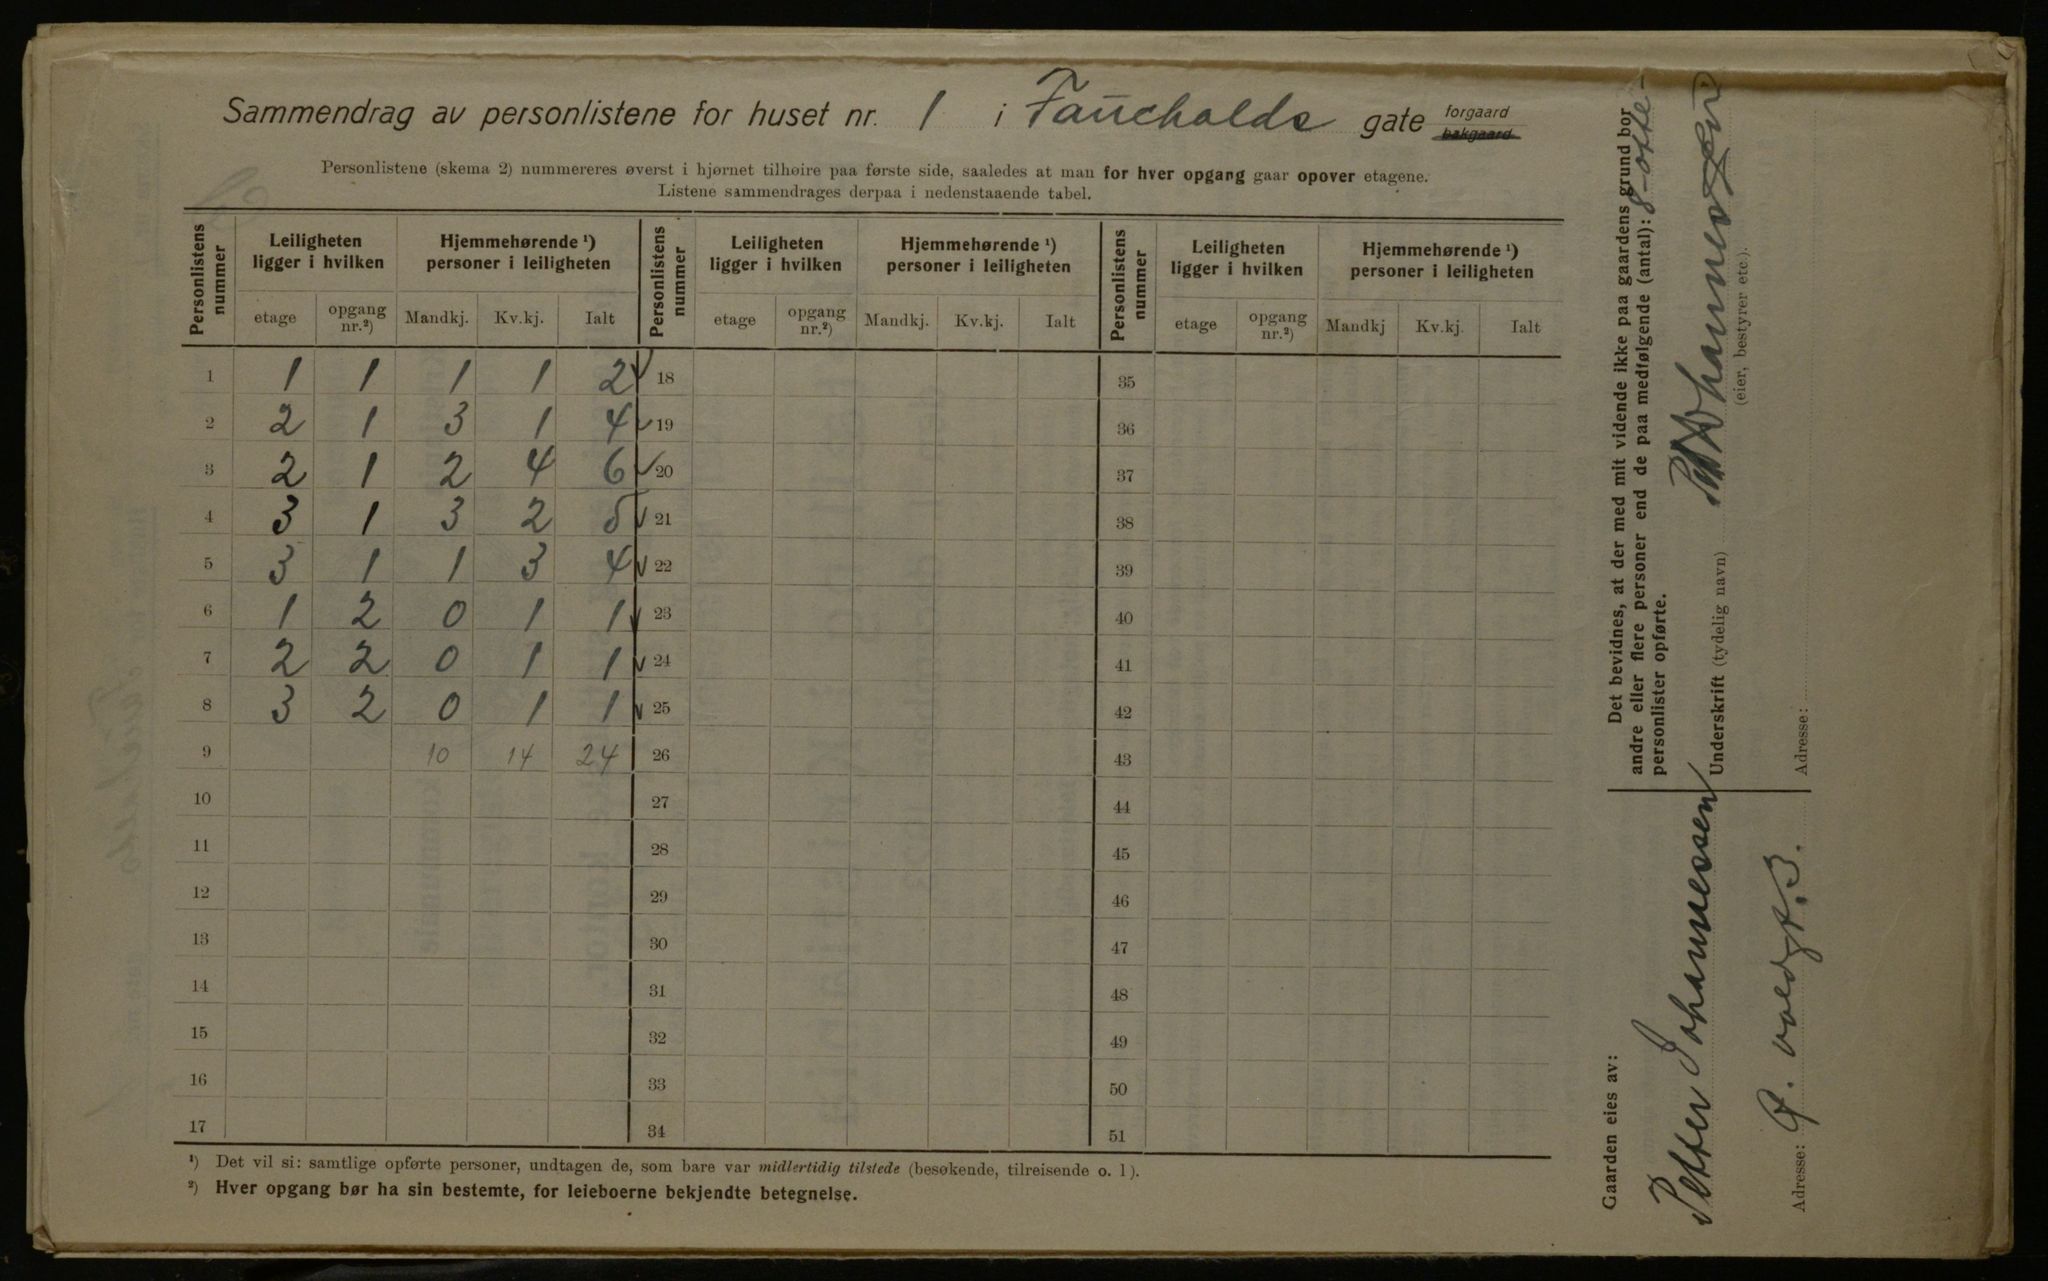 Sammendrag av personlistene for huset nr. 1 i Faucholds gate forgaard bakgaard
Personlistene (skema 2) nummereres øverst i hjørnet tilhøire paa første side, saaledes at man for hver opgang gaar opover etagene.
Listene sammendrages derpaa i nedenstaaende tabel.
Personlistens nummer | Leiligheten ligger i hvilken | Hjemmehørende ¹) personer i leiligheten | Personlistens nummer | Leiligheten ligger i hvilken | Hjemmehørende ¹) personer i leiligheten | Personlistens nummer | Leiligheten ligger i hvilken | Hjemmehørende ¹) personer i leiligheten
etage | opgang nr.²) | Mandkj. | Kv.kj. | Ialt | etage | opgang nr.²) | Mandkj. | Kv.kj. | Ialt | etage | opgang nr.²) | Mandkj | Kv.kj. | Ialt
1 | 1 | 1 | 1 | 1 | 2 ✓ | 18 | 35
2 | 2 | 1 | 3 | 1 | 4 ✓ | 19 | 36
3 | 2 | 1 | 2 | 4 | 6 ✓ | 20 | 37
4 | 3 | 1 | 3 | 2 | 5 ✓ | 21 | 38
5 | 3 | 1 | 1 | 3 | 4 ✓ | 22 | 39
6 | 1 | 2 | 0 | 1 | 1 ✓ | 23 | 40
7 | 2 | 2 | 0 | 1 | 1 ✓ | 24 | 41
8 | 3 | 2 | 0 | 1 | 1 ✓ | 25 | 42
9 | 10 | 14 | 24 | 26 | 43
10 | 27 | 44
11 | 28 | 45
12 | 29 | 46
13 | 30 | 47
14 | 31 | 48
15 | 32 | 49
16 | 33 | 50
17 | 34 | 51
¹) Det vil si: samtlige opførte personer, undtagen de, som bare var midlertidig tilstede (besøkende, tilreisende o. l).
²) Hver opgang bør ha sin bestemte, for leieboerne bekjendte betegnelse.
Det bevidnes, at der med mit vidende ikke paa gaardens grund bor
andre eller flere personer end de paa medfølgende (antal): 8-otte-
personlister opførte.
Underskrift (tydelig navn)
(eier, bestyrer etc.).
Adresse:
Gaarden eies av:
Petter Johannessen
Adresse: